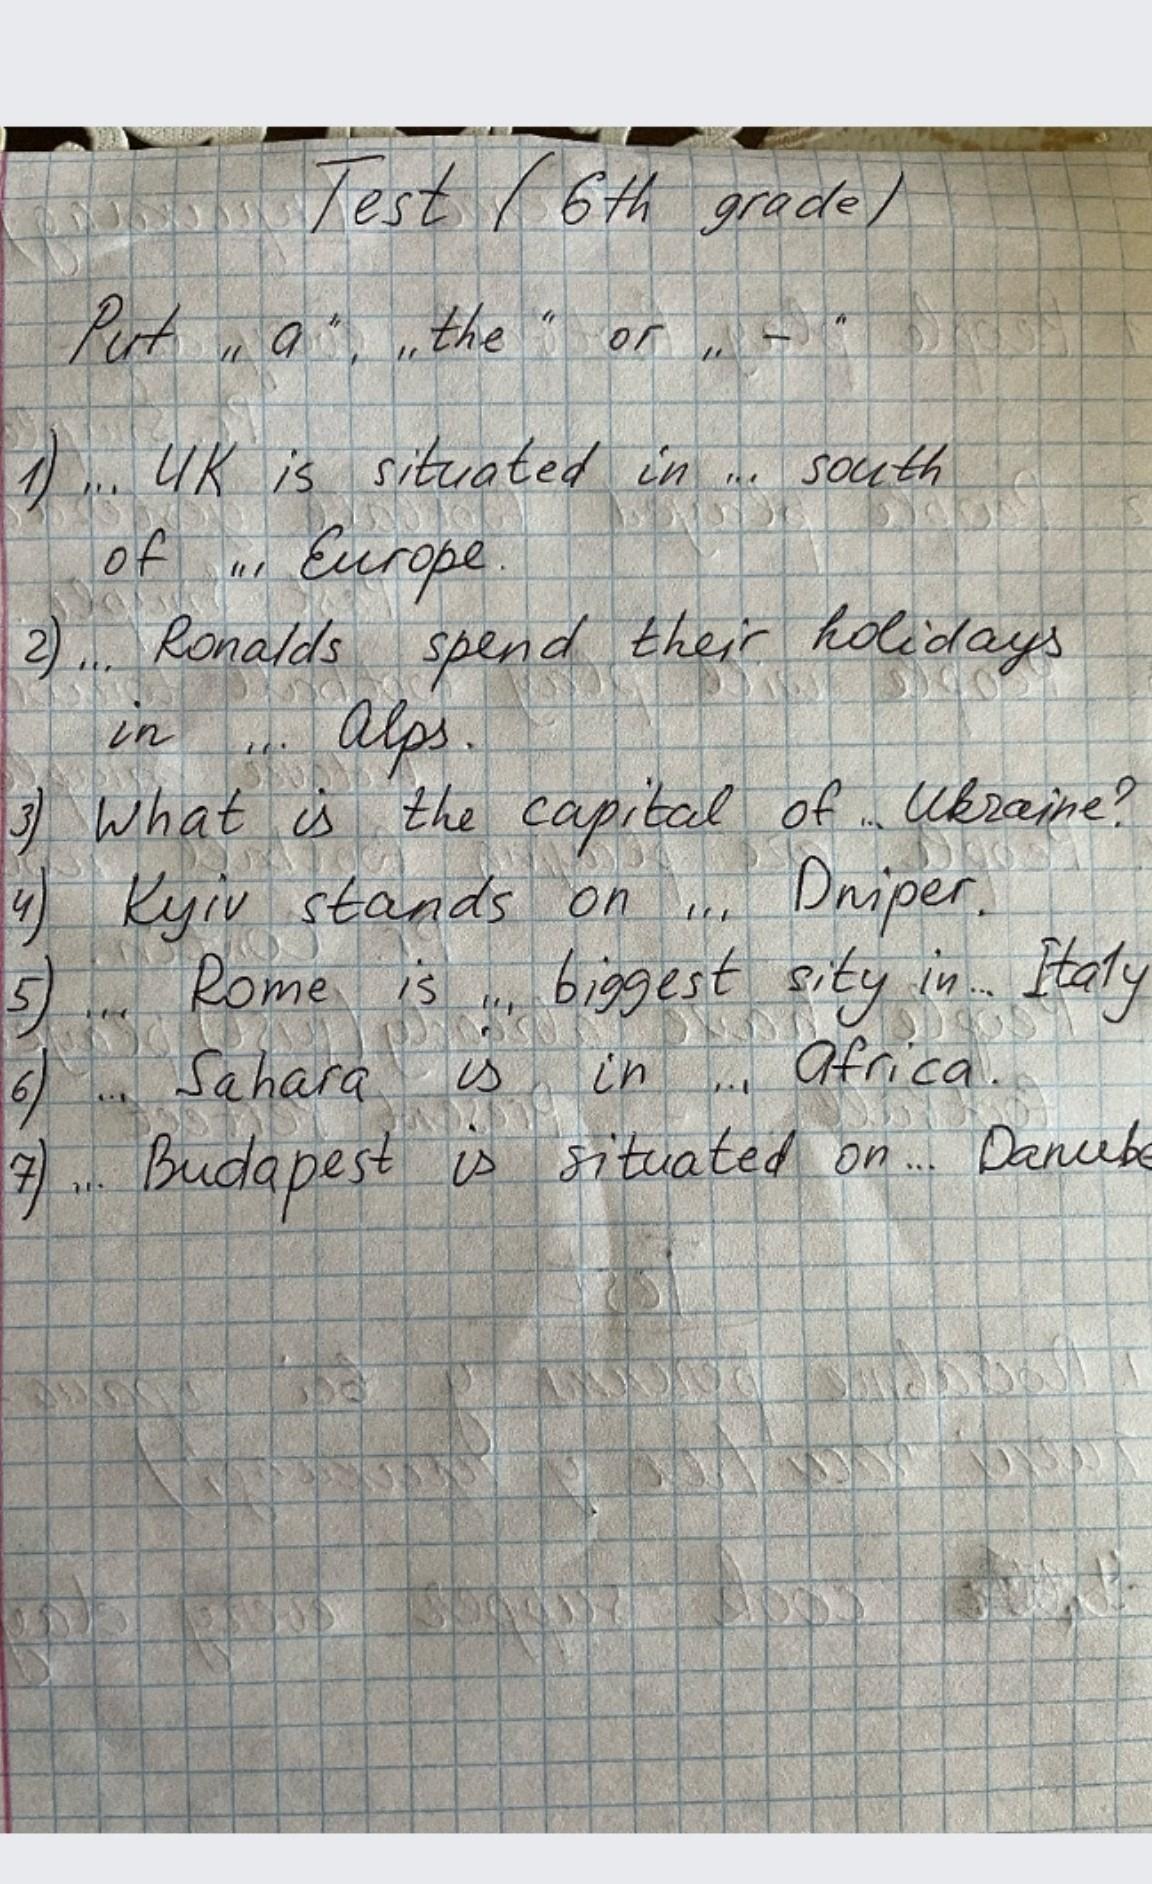 Test (6th grade)
Put „a", „the" or „-"
1) ... UK is situated in ... south
of ... Europe.
2) ... Ronalds spend their holidays
in ... Alps.
3) What is the capital of ... Ukraine?
4) Kyiv stands on ... Dniper.
5) ... Rome is ... biggest sity in ... Italy
6) ... Sahara is in ... Africa.
7) ... Budapest is situated on ... Danube